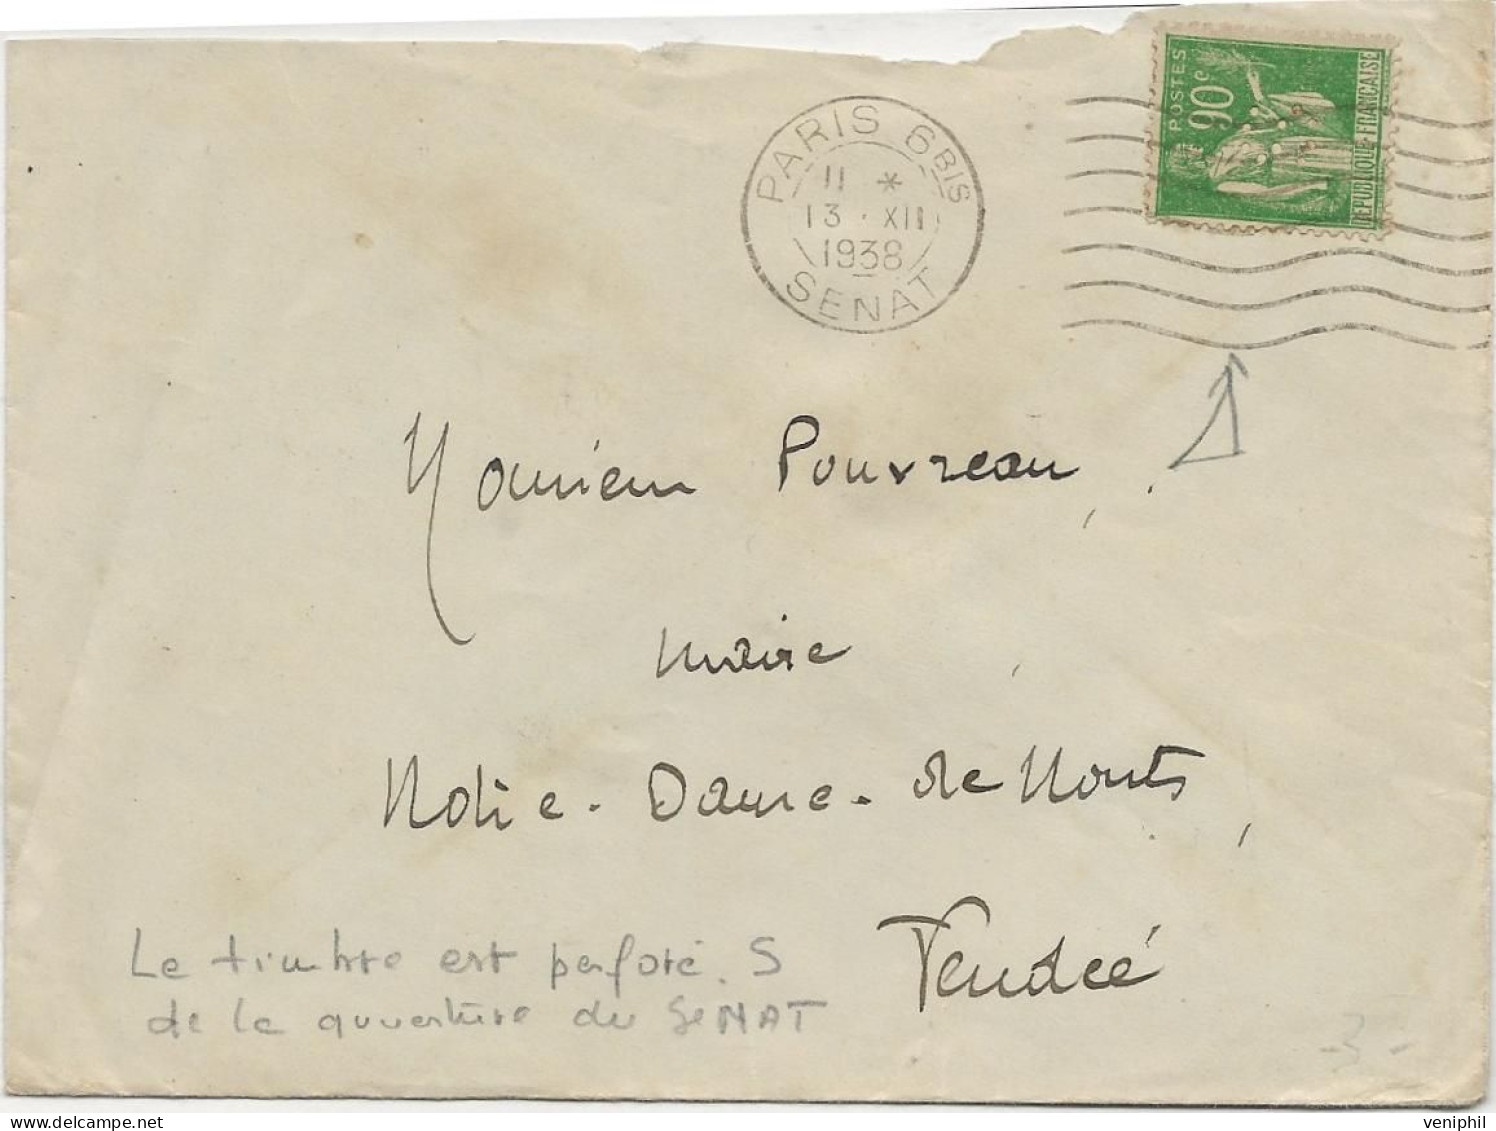 POSTES
90c
REPUBLIQUE FRANCAISE
PARIS 6BIS
11 *
13 · XII
1938
SENAT
Monsieur Pouvreau,
Maire
Notre-Dame-de Monts,
Vendée
Le timbre est perforé S
de la questure du SENAT
- 3 -
veniphil